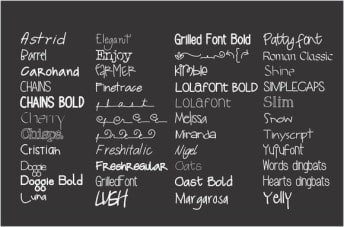 Astrid
Barrel
Carohand
CHAINS
CHAINS BOLD
Cherry
Chispa
Cristian
Doggie
Doggie Bold
Luna
Elegant
Enjoy
FARMER
Finetrace
Freshitalic
Freshregular
GrilledFont
LUSH
Grilled Font Bold
Kimble
LOLAFONT BOLD
LOLAFONT
Melissa
Miranda
Nigel
Oats
Oast Bold
Margarosa
Pattyfont
Roman Classic
Shine
SIMPLECAPS
Slim
Snow
Tinyscript
Yujufont
Words dingbats
Hearts dingbats
Yelly